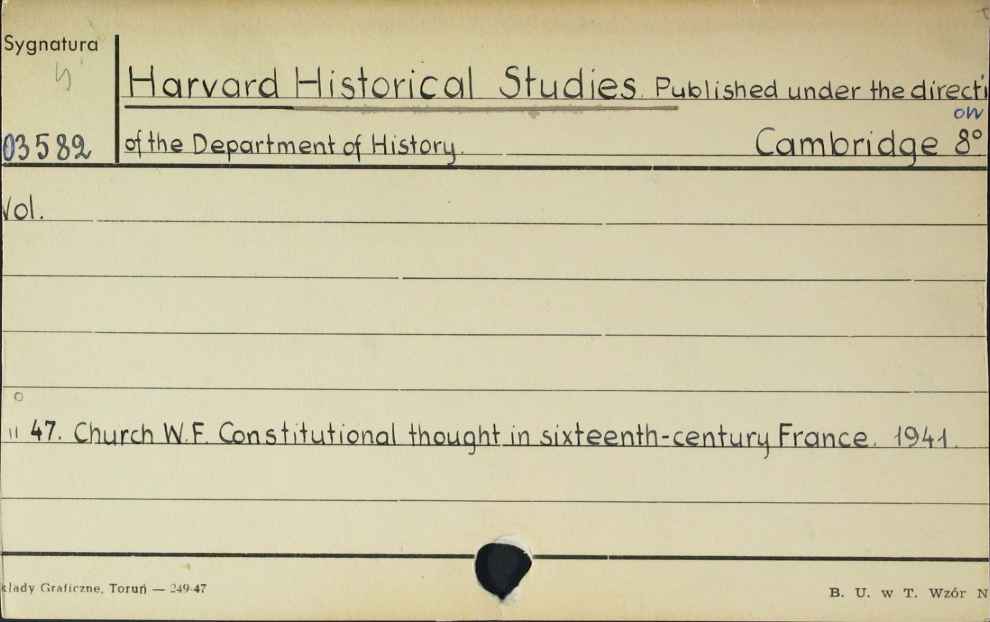 Sygnatura
Harvard Historical Studies. Published under the directi
on
03582 of the Department of History. Cambridge 8°
Vol.
" 47. Church W.F. Constitutional thought in sixteenth-century France. 1941.
kłady Graficzne, Toruń — 249-47
B. U. w T. Wzór N